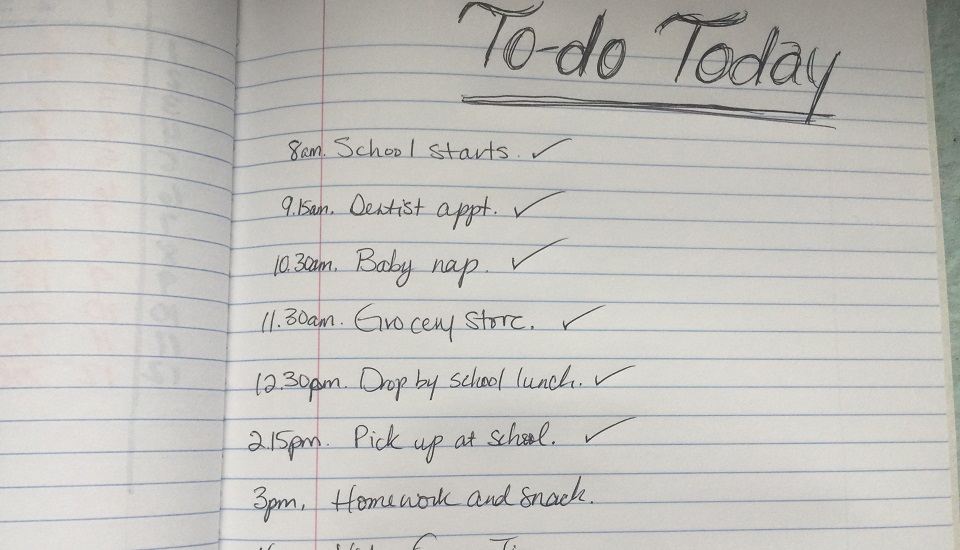 To-do Today
8am. School starts. ✓
9.15am. Dentist appt. ✓
10.30am. Baby nap. ✓
11.30am. Grocery store. ✓
12.30pm. Drop by school lunch. ✓
2.15pm. Pick up at school. ✓
3pm. Homework and snack.